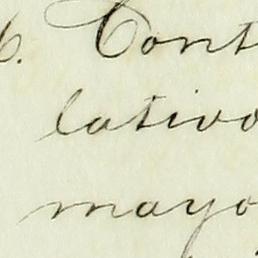 6. Cont
lativo
mayo